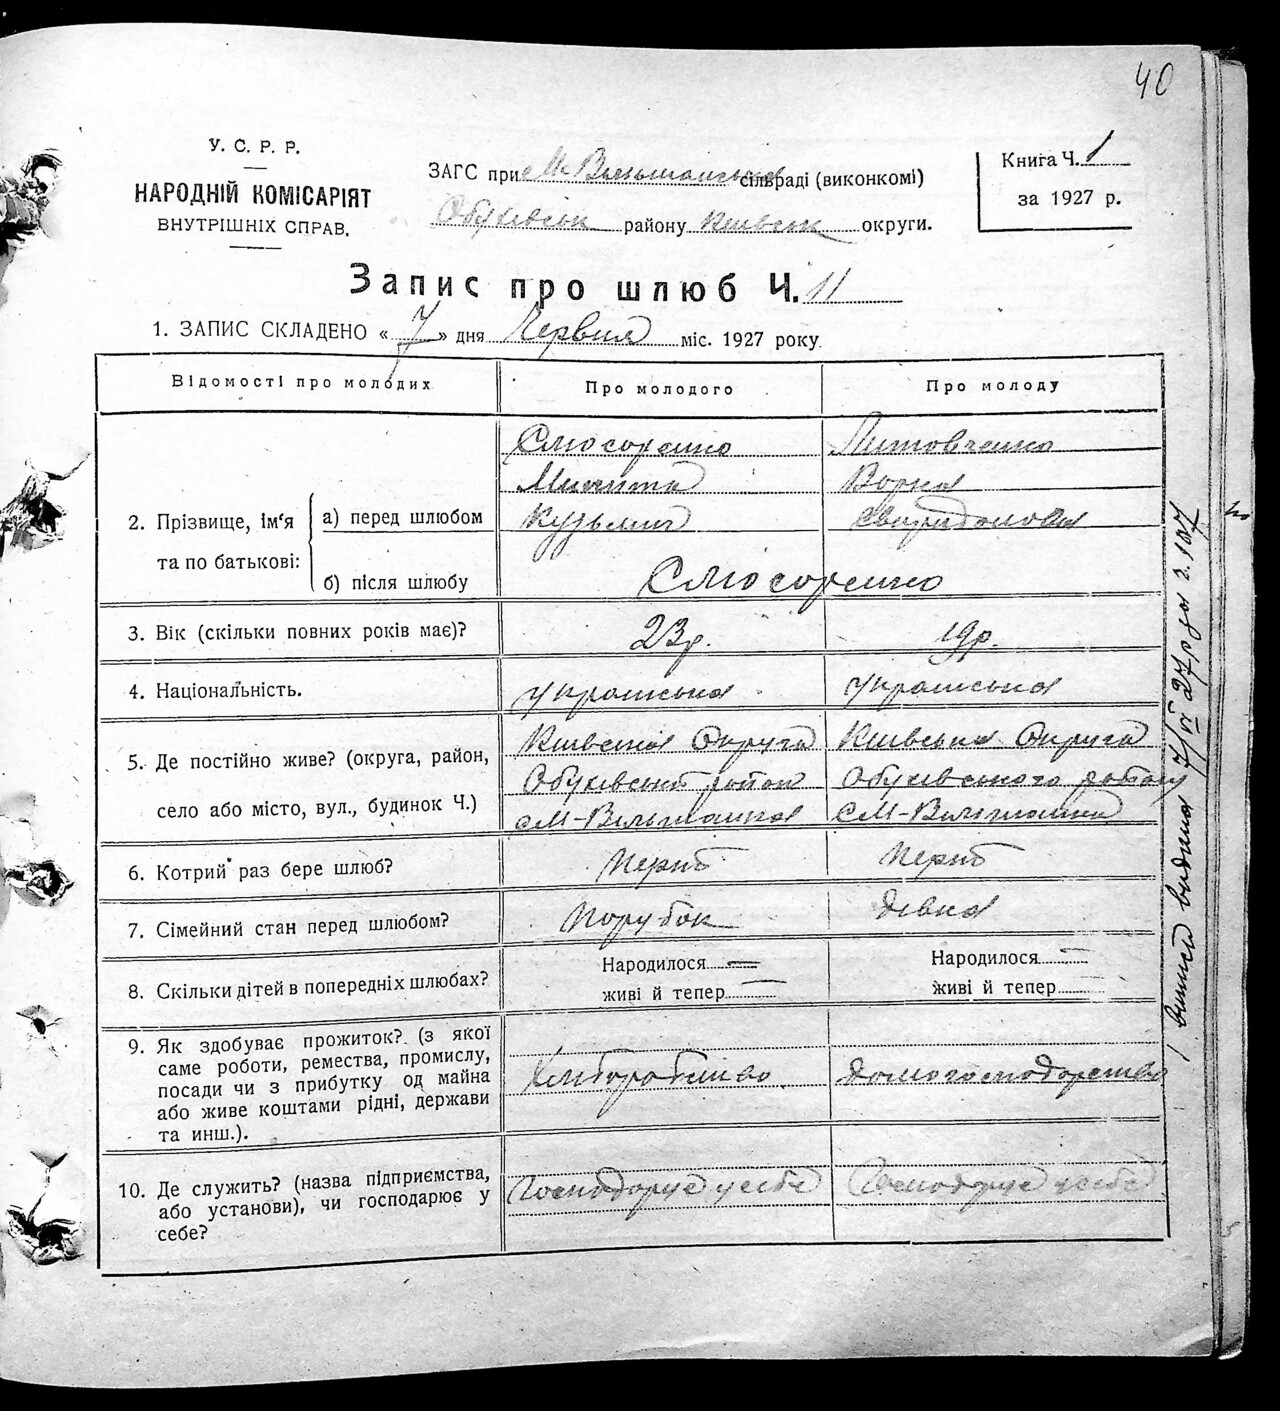 40
У. С. Р. Р.
НАРОДНІЙ КОМІСАРІЯТ
ВНУТРІШНІХ СПРАВ.
ЗАГС при М-Вільшанській сільраді (виконкомі)
Обухівськ району Київськ округи.
Книга Ч. 1
за 1927 р.
Запис про шлюб Ч. 11
1. ЗАПИС СКЛАДЕНО « 7 » дня Червня міс. 1927 року
Відомості про молодих
Про молодого
Про молоду
2. Прізвище, ім'я та по батькові:
а) перед шлюбом
Слюсаренко
Микита
Кузьмич
Литовченко
Свиридонова
б) після шлюбу
Слюсоренко
3. Вік (скільки повних років має)?
23р.
19р.
4. Національність.
Українська
Українська
5. Де постійно живе? (округа, район,
село або місто, вул., будинок Ч.)
Київська Округа
Обухівський район
с М-Вільшанка
Київська Округа
Обухівського району
с М-Вільшанка
6. Котрий раз бере шлюб?
Перший
Перший
7. Сімейний стан перед шлюбом?
Парубок
Дівка
8. Скільки дітей в попередніх шлюбах?
Народилося —
живі й тепер —
Народилося —
живі й тепер —
9. Як здобуває прожиток? (з якої
саме роботи, ремества, промислу,
посади чи з прибутку од майна
або живе коштами рідні, держави
та инш.).
Хліборобство
Домогосподарство
10. Де служить? (назва підприємства,
або установи), чи господарює у
себе?
Господарує у себе
Господарує у себе
Виписа видана 7/VI 27р за г. 107